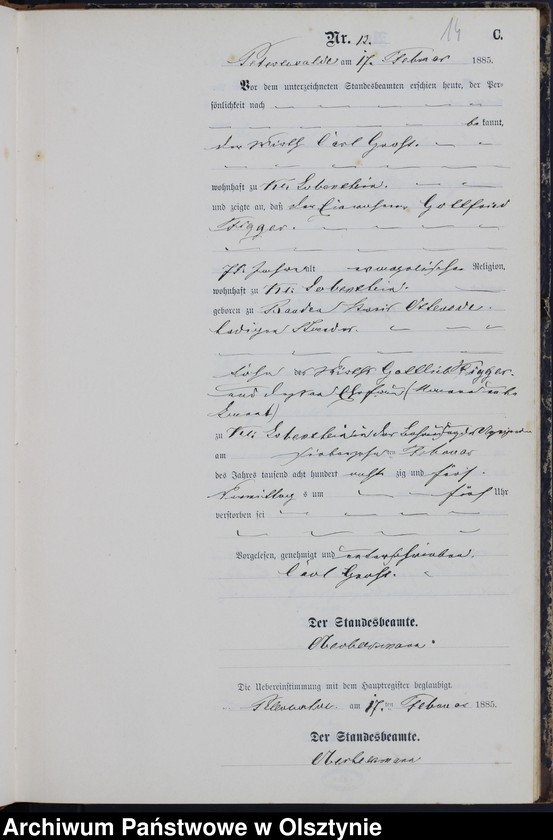 14
Nr. 12. C.
am 17 Februar 1885.
Vor dem unterzeichneten Standesbeamten erschien heute, der Per-
sönlichkeit nach
be kannt,
der Wirth Carl Groß.
wohnhaft zu Kl. Lobenstein.
und zeigte an, daß der Einwohner Gottfried
Figger.
Jahre alt evangelischer Religion,
wohnhaft zu Kl. Lobenstein.
geboren zu Kreis Osterode.
ledigen Standes.
Sohn des Wirths Gottlieb Figger.
und dessen Ehefrau
zu Kl. Lobenstein in der Behausung des
am siebenzehnten Februar
des Jahres tausend acht hundert acht zig und fünf.
Vormittags um fünf Uhr
verstorben sei
Vorgelesen, genehmigt und unterschrieben.
Carl Groß.
Der Standesbeamte.
Die Uebereinstimmung mit dem Hauptregister beglaubigt.
am 17 ten Februar 1885.
Der Standesbeamte.
Archiwum Państwowe w Olsztynie